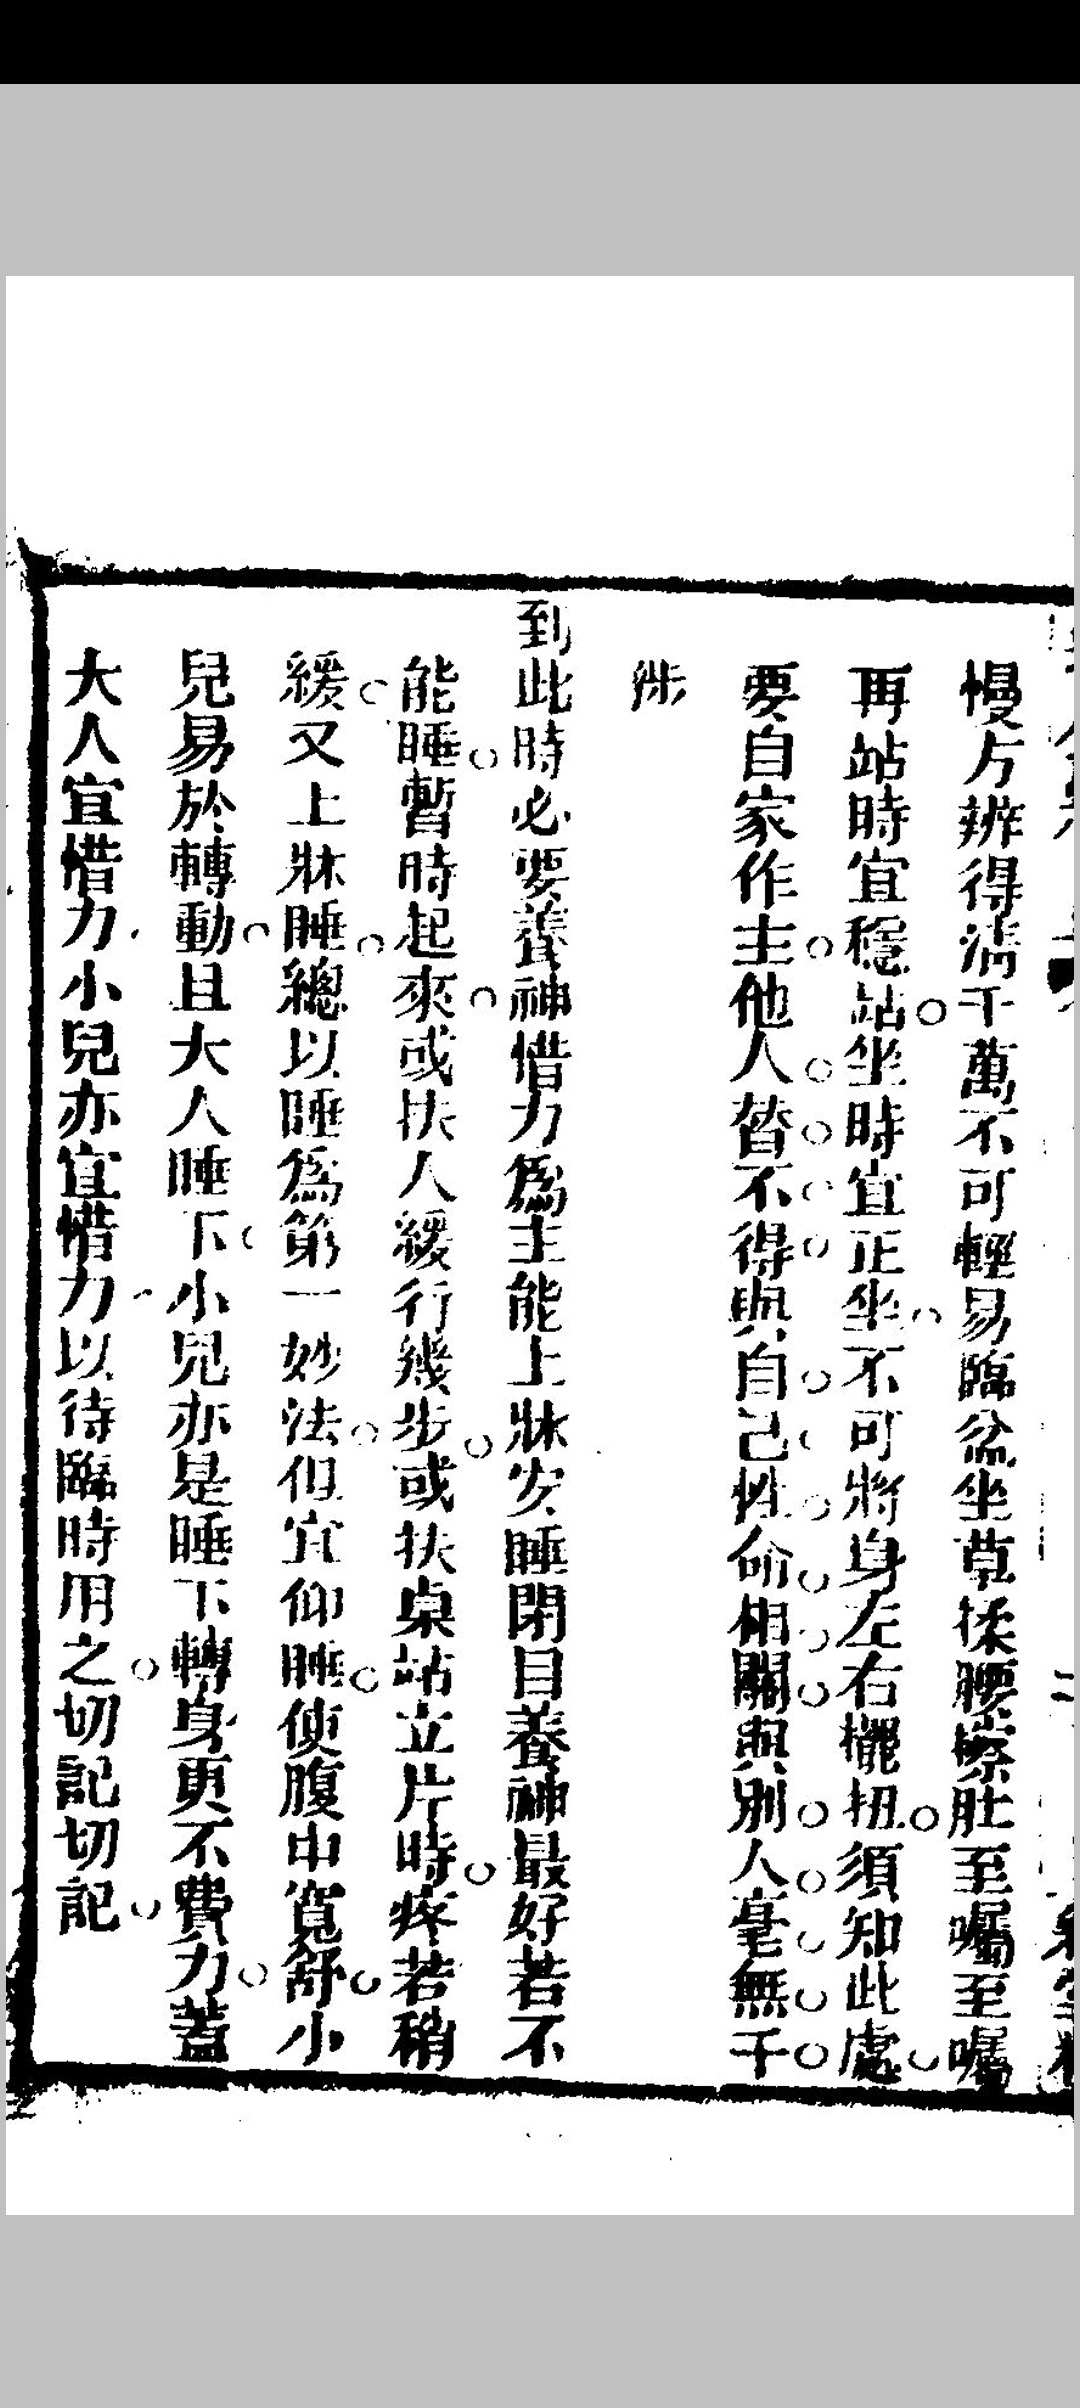 慢方辨得清千萬不可輕易臨盆坐草揉腰擦肚至囑至囑
再站時宜穩站坐時宜正坐不可將身左右擺扭須知此處
要自家作主他人替不得與自己性命相關與別人毫無干
涉
到此時必要養神惜力爲主能上牀安睡閉目養神最好若不
能睡暫時起來或扶人緩行幾步或扶桌站立片時疼若稍
緩又上牀睡總以睡爲第一妙法但宜仰睡使腹中寬舒小
兒易於轉動且大人睡下小兒亦是睡下轉身更不費力蓋
大人宜惜力小兒亦宜惜力以待臨時用之切記切記